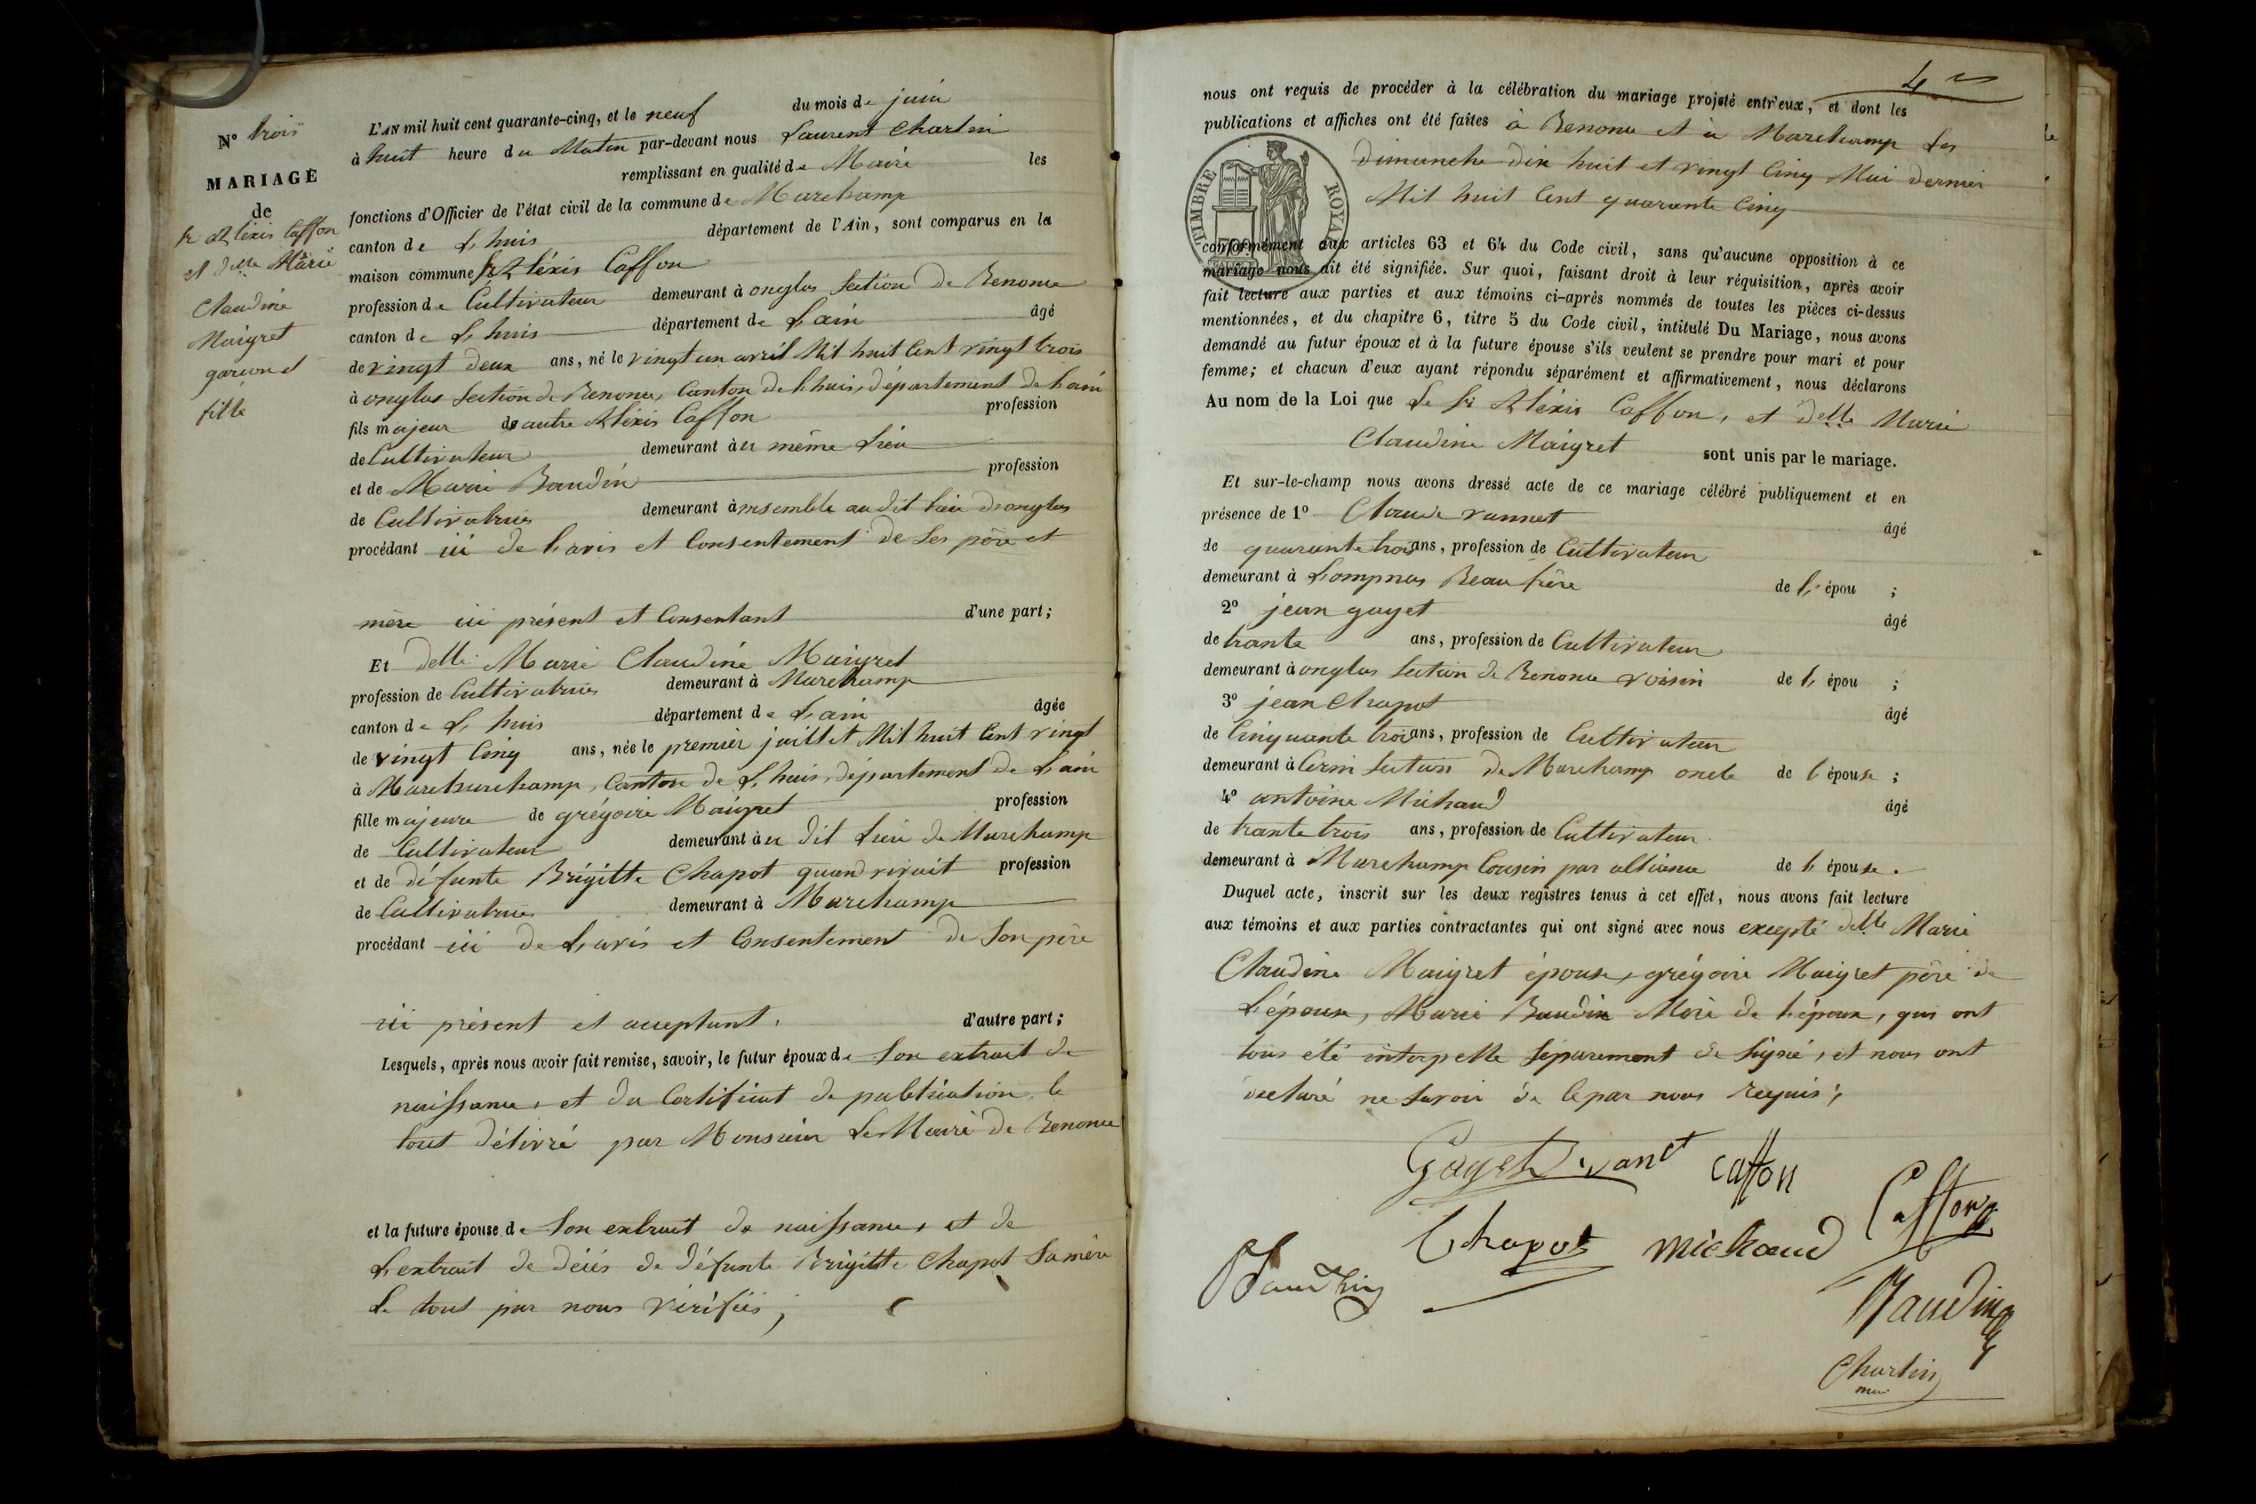 N° trois
MARIAGE
de
sr Aléxis Caffon
et delle Marie
Claudine
Maigret
garçon et
fille
L'AN mil huit cent quarante-cinq, et le neuf du mois de juin
à huit heure du Matin par-devant nous Laurent Charlin
remplissant en qualité de Maire les
fonctions d'Officier de l'état civil de la commune de Marchamp
canton de Lhuis département de l'Ain, sont comparus en la
maison commune sr Aléxis Caffon
profession de Cultivateur demeurant à onglas Section de Benonce
canton de Lhuis département de Lain âgé
de vingt deux ans, né le vingt un avril Mil huit Cent vingt trois
à onglas Section de Benonce, Canton de Lhuis, département de Lain
fils majeur de autre Aléxis Caffon profession
de Cultivateur demeurant àu même Lieu
et de Marie Baudin profession
de Cultivatrice demeurant à ensemble au dit Lieu donglas
procédant ici de Lavis et Consentement de Ses père et
mère ici présent et Consentant d'une part;
Et delle Marie Claudine Maigret
profession de Cultivatrice demeurant à Marchamp
canton de Lhuis département de Lain âgée
de vingt Cinq ans, née le premier juillet Mil huit Cent vingt
à Marcharchamp, Canton de Lhuis, département de Lain
fille majeure de grégoire Maigret profession
de Cultivateur demeurant àu dit Lieu de Marchamp
et de défunte Brigitte Chapot quand vivait profession
de Cultivatrice demeurant à Marchamp
procédant ici de Lavis et Consentement de Son père
ici présent et acceptant. d'autre part;
Lesquels, après nous avoir fait remise, savoir, le futur époux de Son extrait de
naissance, et du Certificat de publication, le
tout délivré par Monsieur Le Maire de Benonce
et la future épouse de Son extrait de naissance, et de
Lextrait de décés de défunte Brigitte Chapot Sa mère
Le tout par nous vérifiés;
4
nous ont requis de procéder à la célébration du mariage projeté entr'eux, et dont les
publications et affiches ont été faites à Benonce et à Marchamp Les
dimanche dix huit et vingt Cinq Mai dernier
Mil huit Cent quarante Cinq
TIMBRE ROYAL
conformément aux articles 63 et 64 du Code civil, sans qu'aucune opposition à ce
mariage nous ait été signifiée. Sur quoi, faisant droit à leur réquisition, après avoir
fait lecture aux parties et aux témoins ci-après nommés de toutes les pièces ci-dessus
mentionnées, et du chapitre 6, titre 5 du Code civil, intitulé Du Mariage, nous avons
demandé au futur époux et à la future épouse s'ils veulent se prendre pour mari et pour
femme; et chacun d'eux ayant répondu séparément et affirmativement, nous déclarons
Au nom de la Loi que Le Sr Aléxis Caffon, et delle Marie
Claudine Maigret sont unis par le mariage.
Et sur-le-champ nous avons dressé acte de ce mariage célébré publiquement et en
présence de 1° Claude vannet âgé
de quarante trois ans, profession de Cultivateur
demeurant à Lompnas Beau frère de L épou ;
2° jean gayet âgé
de trante ans, profession de Cultivateur
demeurant à onglas Section de Benonce voisin de L épou ;
3° jean Chapot âgé
de Cinquante trois ans, profession de Cultivateur
demeurant à Cerin Section de Marchamp oncle de L épouse ;
4° antoine Michaud âgé
de trante trois ans, profession de Cultivateur
demeurant à Marchamp Cousin par alliance de L épouse.
Duquel acte, inscrit sur les deux registres tenus à cet effet, nous avons fait lecture
aux témoins et aux parties contractantes qui ont signé avec nous excepté delle Marie
Claudine Maigret épouse, grégoire Maigret père de
Lépouse, Marie Baudin Mère de Lépoux, qui ont
tous été interpelle Séparement de Signé, et nous ont
declaré ne Savoir de Ce par nous requis;
Gayet vanet Caffon
Caffon
Chapot michaud
Baudin
Baudin
Charlin